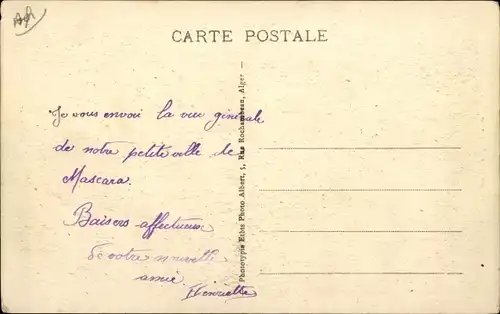 CARTE POSTALE
Je vous envoi la vue générale
de notre petite ville de
Mascara.
Baisers affectueux
de votre nouvelle
amie
Henriette
Phototypie Etbts Photo Albert, 5, Rue Rochambeau, Alger —